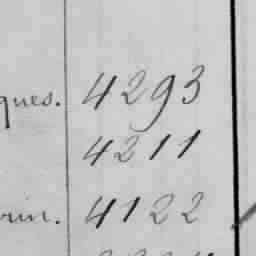 ques. 4293
4211
rin. 4122